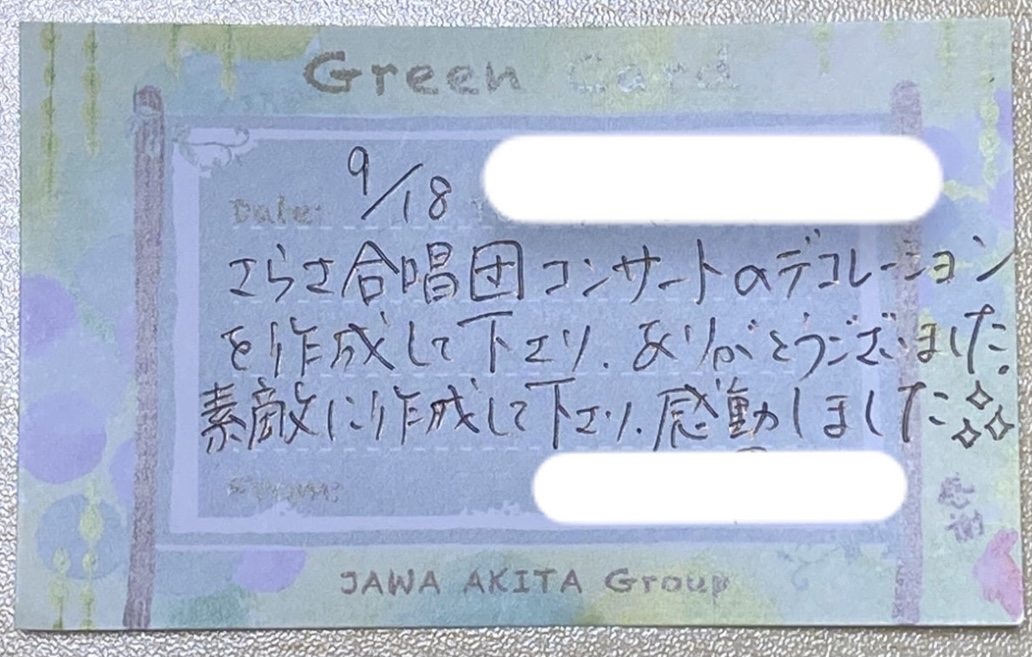 Green Card
Date: 9/18
さらさ合唱団コンサートのデコレーション
を作成して下さり、ありがとうございました。
素敵に作成して下さり、感動しました✧✧✧
From:
感謝
JAWA AKITA Group